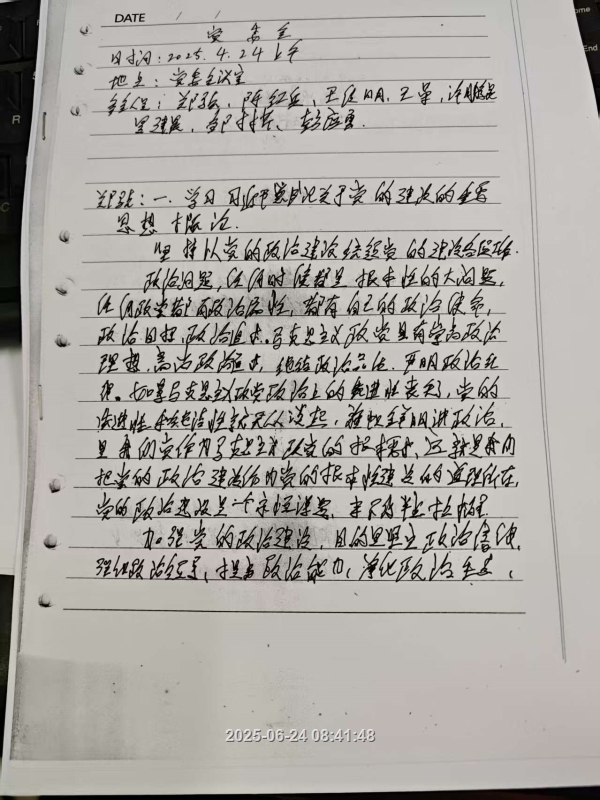 DATE / /
党委会
时间：2025.4.24上午
地点：党委会议室
郑张：一、学习习近平总书记关于党的建设的重要
思想 十版论.
坚持以党的政治建设统领党的建设各项工作.
政治问题，任何时候都是根本性的大问题，
任何政党都有政治属性，都有自己的政治使命，
政治目标，政治追求.马克思主义政党具有崇高政治
理想，高尚政治追求，纯洁政治品质，严明政治纪
律.如果马克思主义政党政治上的先进性丧失了，党的
先进性和纯洁性就无从谈起，旗帜鲜明讲政治，
是我们党作为马克思主义政党的根本要求，这就是我们
把党的政治建设作为党的根本性建设的道理所在，
党的政治建设是一个永恒课题，来不得半点松懈.
加强党的政治建设，目的是坚定政治信仰，
强化政治领导，提高政治能力，净化政治生态，
2025-06-24 08:41:48